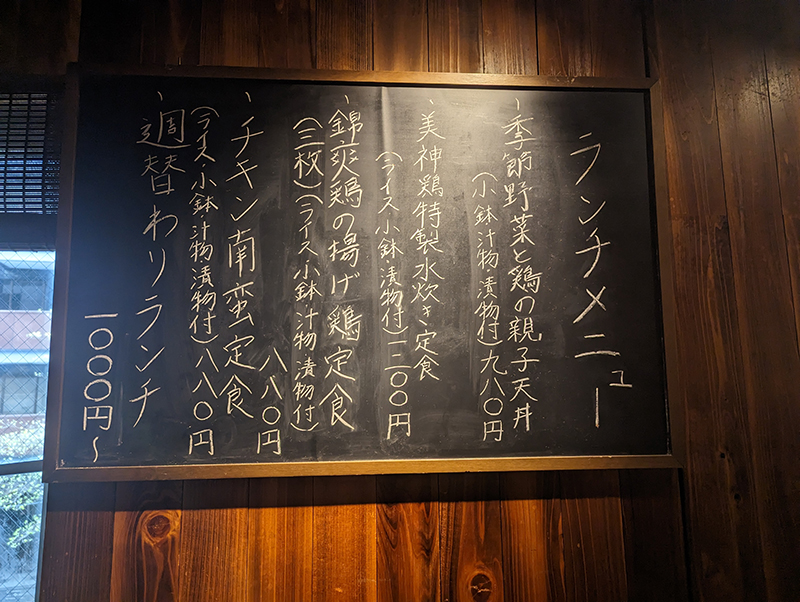 ランチメニュー
～季節野菜と鶏の親子天丼
(小鉢・汁物・漬物付)九八〇円
～美神鶏特製水炊き定食
(ライス・小鉢・漬物付)一二〇〇円
～錦爽鶏の揚げ鶏定食
(三枚)(ライス・小鉢・汁物・漬物付)
八八〇円
～チキン南蛮定食
(ライス・小鉢・汁物・漬物付)八八〇円
～週替わりランチ
一〇〇〇円～